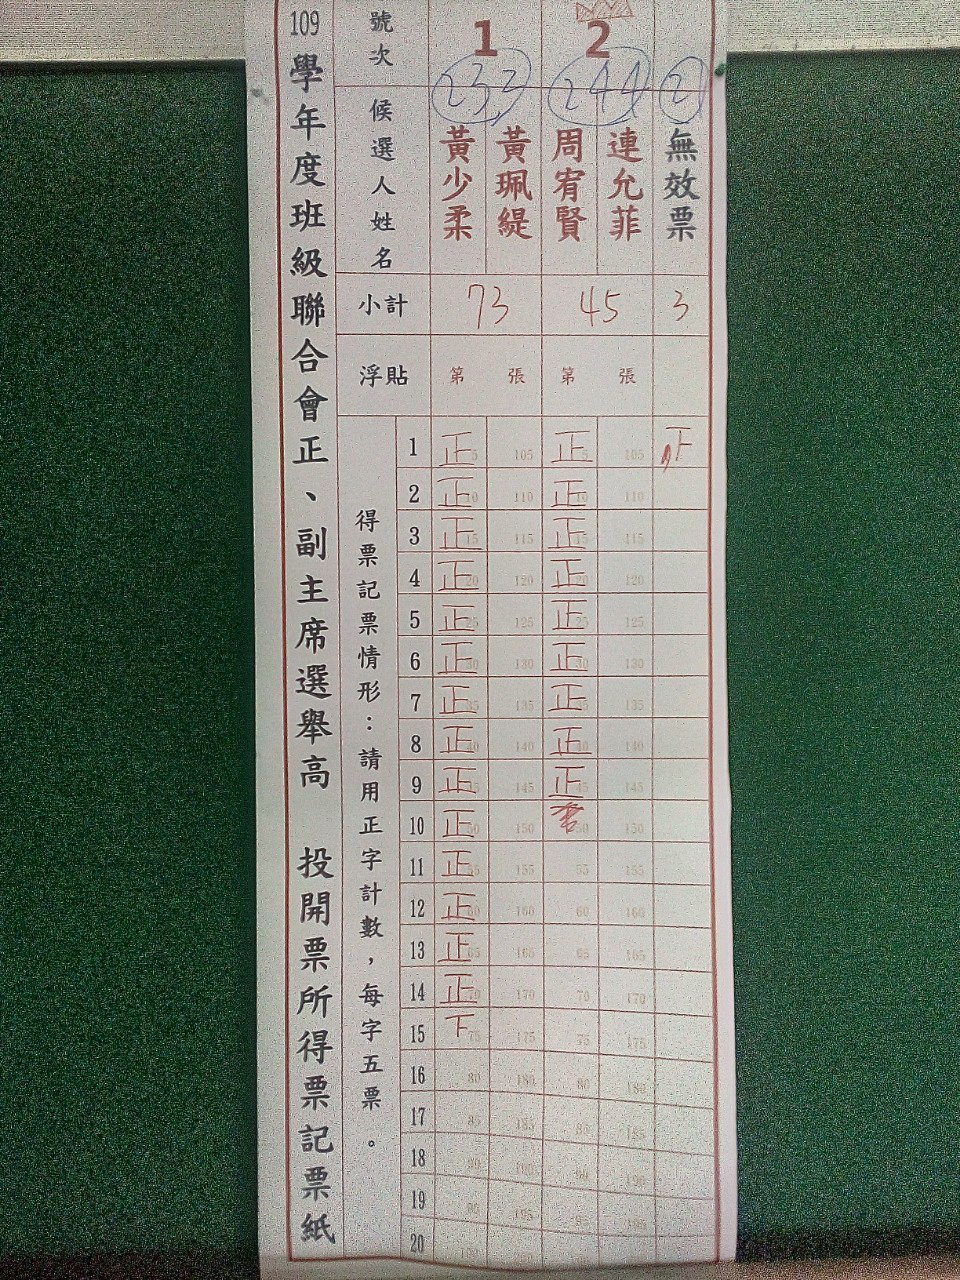 109學年度班級聯合會正、副主席選舉高 投開票所得票記票紙
號次 1 2
233 244 21
候選人姓名 黃少柔 黃珮緹 周宥賢 連允菲 無效票
小計 73 45 3
浮貼 第 張 第 張
得票記票情形：請用正字計數，每字五票。
1 正 5 105 正 5 105
2 正 10 110 正 10 110
3 正 15 115 正 15 115
4 正 20 120 正 20 120
5 正 25 125 正 25 125
6 正 30 130 正 30 130
7 正 35 135 正 35 135
8 正 40 140 正 40 140
9 正 45 145 正 45 145
10 正 50 150 50 150
11 正 55 155 55 155
12 正 60 160 60 160
13 正 65 165 65 165
14 正 70 170 70 170
15 下 75 175 75 175
16 80 180 80 180
17 85 185 85 185
18 90 190 90 190
19 95 195 95 195
20